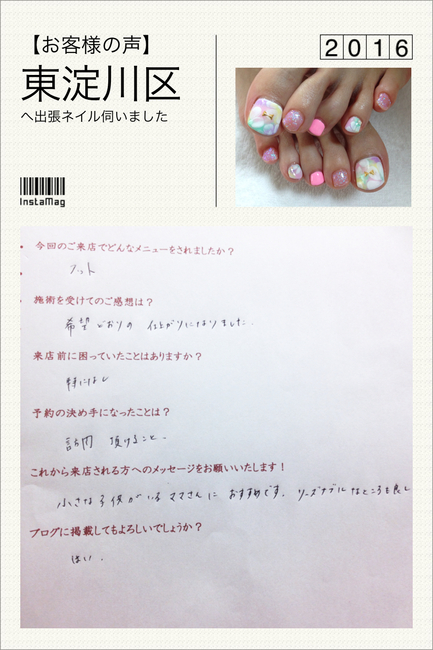 【お客様の声】
東淀川区
へ出張ネイル伺いました
2016
InstaMag
今回のご来店でどんなメニューをされましたか？
フット
施術を受けてのご感想は？
希望どおりの 仕上がりになりました.
来店前に困っていたことはありますか？
特になし
予約の決め手になったことは？
訪問 頂けること.
これから来店される方へのメッセージをお願いいたします！
小さな子供がいるママさんに おすすめです. リーズナブルなところも良し
ブログに掲載してもよろしいでしょうか？
はい.